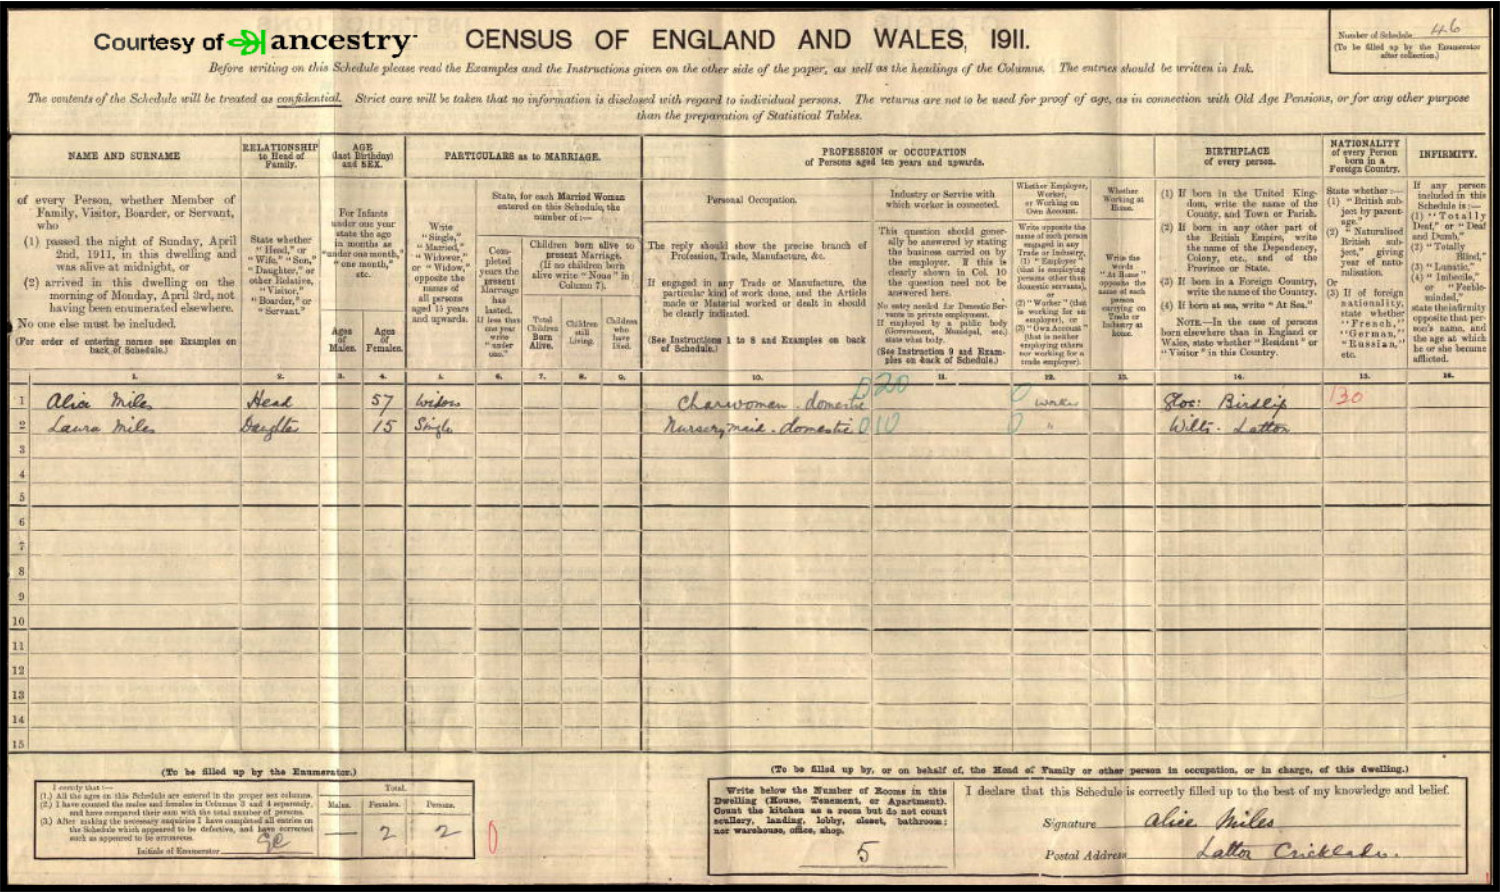 Courtesy of ancestry
CENSUS OF ENGLAND AND WALES, 1911.
Number of Schedule 46
(To be filled up by the Enumerator
after collection.)
Before writing on this Schedule please read the Examples and the Instructions given on the other side of the paper, as well as the headings of the Columns. The entries should be written in Ink.
The contents of the Schedule will be treated as confidential. Strict care will be taken that no information is disclosed with regard to individual persons. The returns are not to be used for proof of age, as in connection with Old Age Pensions, or for any other purpose
than the preparation of Statistical Tables.
NAME AND SURNAME
RELATIONSHIP
to Head of
Family.
AGE
(last Birthday)
and SEX.
PARTICULARS as to MARRIAGE.
PROFESSION or OCCUPATION
of Persons aged ten years and upwards.
BIRTHPLACE
of every person.
NATIONALITY
of every Person
born in a
Foreign Country.
INFIRMITY.
of every Person, whether Member of
Family, Visitor, Boarder, or Servant,
who
(1) passed the night of Sunday, April
2nd, 1911, in this dwelling and
was alive at midnight, or
(2) arrived in this dwelling on the
morning of Monday, April 3rd, not
having been enumerated elsewhere.
No one else must be included.
(For order of entering names see Examples on
back of Schedule.)
State whether
"Head," or
"Wife," "Son,"
"Daughter," or
other Relative,
"Visitor,"
"Boarder," or
"Servant."
For Infants
under one year
state the age
in months as
"under one month,"
"one month,"
etc.
Ages
of
Males.
Ages
of
Females.
Write
"Single,"
"Married,"
"Widower,"
or "Widow,"
opposite the
names of
all persons
aged 15 years
and upwards.
State, for each Married Woman
entered on this Schedule, the
number of:—
Completed
years the
present
Marriage
has
lasted.
If less than
one year
write
"under
one."
Children born alive to
present Marriage.
(If no children born
alive write "None" in
Column 7).
Total
Children
Born
Alive.
Children
still
Living.
Children
who
have
Died.
Personal Occupation.
The reply should show the precise branch of
Profession, Trade, Manufacture, &c.
If engaged in any Trade or Manufacture, the
particular kind of work done, and the Article
made or Material worked or dealt in should
be clearly indicated.
(See Instructions 1 to 8 and Examples on back
of Schedule.)
Industry or Service with
which worker is connected.
This question should gener-
ally be answered by stating
the business carried on by
the employer. If this is
clearly shown in Col. 10
the question need not be
answered here.
No entry needed for Domestic Ser-
vants in private employment.
If employed by a public body
(Government, Municipal, etc.)
state what body.
(See Instruction 9 and Exam-
ples on back of Schedule.)
Whether Employer,
Worker,
or Working on
Own Account.
Write opposite the
name of each person
engaged in any
Trade or Industry,
(1) "Employer"
(that is employing
persons other than
domestic servants),
or
(2) "Worker" (that
is working for an
employer), or
(3) "Own Account"
(that is neither
employing others
nor working for a
trade employer).
Whether
Working at
Home.
Write the
words
"At Home"
opposite the
name of each
person
carrying on
Trade or
Industry at
home.
(1) If born in the United King-
dom, write the name of the
County, and Town or Parish.
(2) If born in any other part of
the British Empire, write
the name of the Dependency,
Colony, etc., and of the
Province or State.
(3) If born in a Foreign Country,
write the name of the Country.
(4) If born at sea, write "At Sea."
NOTE.—In the case of persons
born elsewhere than in England or
Wales, state whether "Resident" or
"Visitor" in this Country.
State whether:—
(1) "British sub-
ject by parent-
age."
(2) "Naturalised
British sub-
ject," giving
year of natu-
ralisation.
Or
(3) If of foreign
nationality,
state whether
"French,"
"German,"
"Russian,"
etc.
If any person
included in this
Schedule is:—
(1) "Totally
Deaf," or "Deaf
and Dumb,"
(2) "Totally
Blind,"
(3) "Lunatic,"
(4) "Imbecile,"
or "Feeble-
minded,"
state the infirmity
opposite that per-
son's name, and
the age at which
he or she became
afflicted.
1. 2. 3. 4. 5. 6. 7. 8. 9. 10. 11. 12. 13. 14. 15. 16.
1 Alice Miles Head 57 Widow Charwoman - domestic 020 0 Worker Glos: Birdlip 130
2 Laura Miles Daughter 15 Single Nursery maid - domestic 010 0 " Wilts. Latton
3
4
5
6
7
8
9
10
11
12
13
14
15
(To be filled up by the Enumerator.)
I certify that:—
(1.) All the ages on this Schedule are entered in the proper sex columns.
(2.) I have counted the males and females in Columns 3 and 4 separately,
and have compared their sum with the total number of persons.
(3.) After making the necessary enquiries I have completed all entries on
the Schedule which appeared to be defective, and have corrected
such as appeared to be erroneous.
Initials of Enumerator
Total.
Males. Females. Persons.
— 2 2
0
(To be filled up by, or on behalf of, the Head of Family or other person in occupation, or in charge, of this dwelling.)
Write below the Number of Rooms in this
Dwelling (House, Tenement, or Apartment).
Count the kitchen as a room but do not count
scullery, landing, lobby, closet, bathroom;
nor warehouse, office, shop.
5
I declare that this Schedule is correctly filled up to the best of my knowledge and belief.
Signature Alice Miles
Postal Address Latton Cricklade.